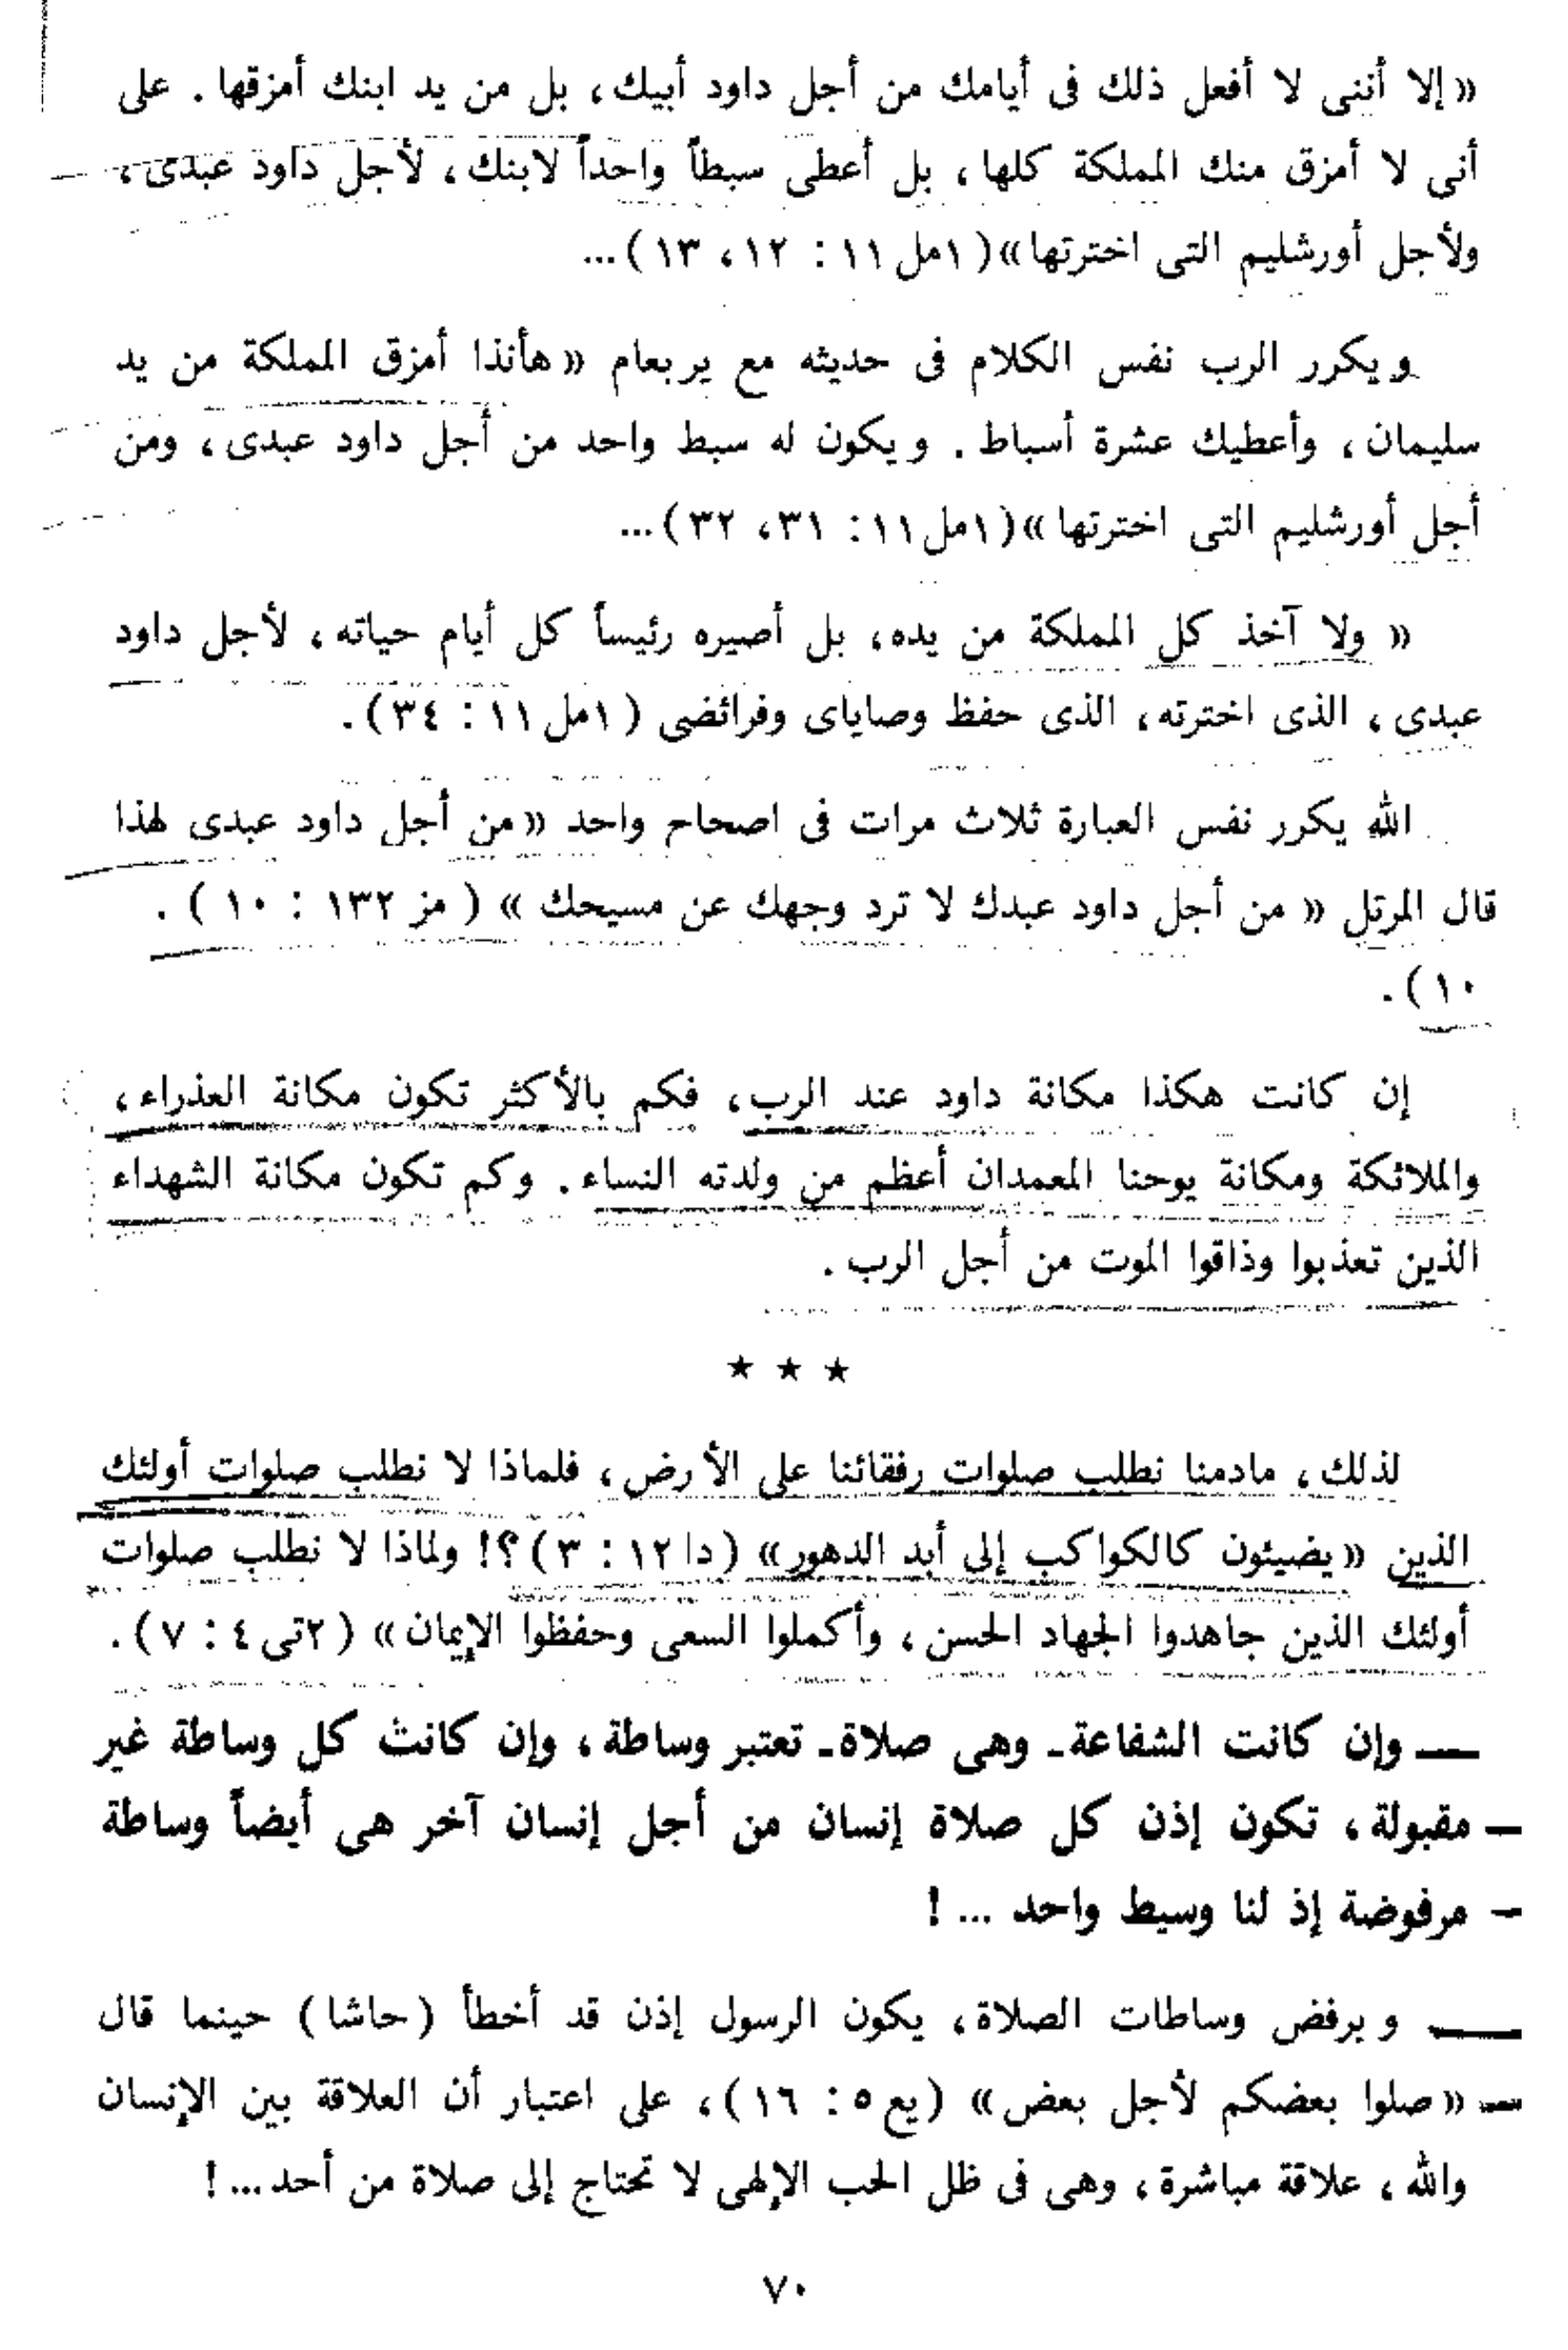 « إلا أننى لا أفعل ذلك فى أيامك من أجل داود أبيك، بل من يد ابنك أمزقها. على
أنى لا أمزق منك المملكة كلها، بل أعطى سبطاً واحداً لابنك، لأجل داود عبدى،
ولأجل أورشليم التى اخترتها» (١مل ١١ : ١٢، ١٣)...
ويكرر الرب نفس الكلام فى حديثه مع يربعام «هأنذا أمزق المملكة من يد
سليمان، وأعطيك عشرة أسباط. ويكون له سبط واحد من أجل داود عبدى، ومن
أجل أورشليم التى اخترتها» (١مل ١١ : ٣١، ٣٢)...
« ولا آخذ كل المملكة من يده، بل أصيره رئيساً كل أيام حياته، لأجل داود
عبدى، الذى اخترته، الذى حفظ وصاياى وفرائضى (١مل ١١ : ٣٤).
الله يكرر نفس العبارة ثلاث مرات فى اصحاح واحد «من أجل داود عبدى لهذا
قال المرتل « من أجل داود عبدك لا ترد وجهك عن مسيحك » ( مز ١٣٢ : ١٠ ) .
١٠).
إن كانت هكذا مكانة داود عند الرب، فكم بالأكثر تكون مكانة العذراء،
والملائكة ومكانة يوحنا المعمدان أعظم من ولدته النساء. وكم تكون مكانة الشهداء
الذين تعذبوا وذاقوا الموت من أجل الرب.
★ ★ ★
لذلك، مادمنا نطلب صلوات رفقائنا على الأرض، فلماذا لا نطلب صلوات أولئك
الذين «يضيئون كالكواكب إلى أبد الدهور» (دا ١٢ : ٣)؟! ولماذا لا نطلب صلوات
أولئك الذين جاهدوا الجهاد الحسن، وأكملوا السعى وحفظوا الإيمان» (٢تى ٤ : ٧).
وإن كانت الشفاعة ـ وهى صلاة ـ تعتبر وساطة، وإن كانت كل وساطة غير
مقبولة، تكون إذن كل صلاة إنسان من أجل إنسان آخر هى أيضاً وساطة
مرفوضة إذ لنا وسيط واحد ...!
ويرفض وساطات الصلاة، يكون الرسول إذن قد أخطأ (حاشا) حينما قال
«صلوا بعضكم لأجل بعض» (يع ٥ : ١٦)، على اعتبار أن العلاقة بين الإنسان
والله، علاقة مباشرة، وهى فى ظل الحب الإلهى لا تحتاج إلى صلاة من أحد...!
٧٠